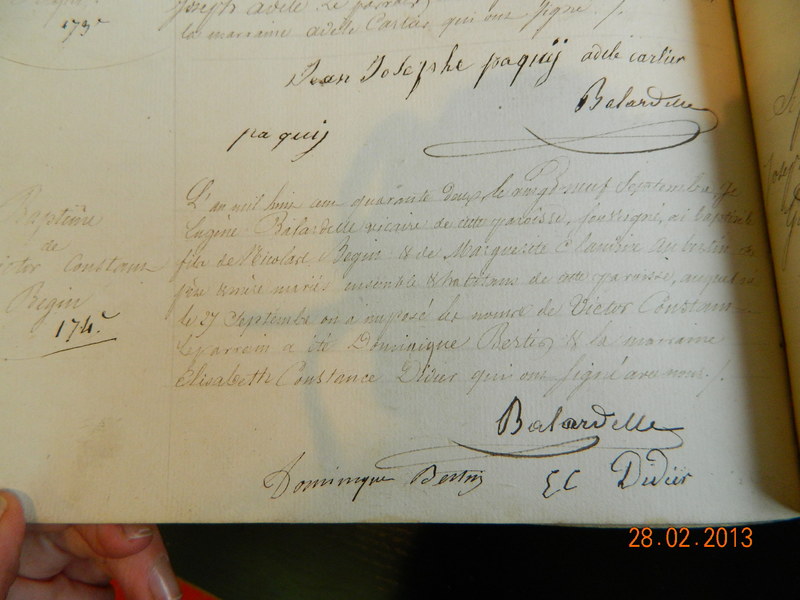 173e
Joseph adèle le parrain
la marraine adèle Cartier qui ont signé /.
Jean Josephe paquij adele cartier
Balardelle
paquij
Baptême
de
Victor Constant
Begin
174e
L'an mil huit cent quarante deux, le vingt neuf Septembre, je
Eugène Balardelle vicaire de cette paroisse, soussigné, ai baptisé le
fils de Nicolas Begin & de Marguerite Claudine Aubertin
père & mère mariés ensemble & habitans de cette paroisse, auquel
le 27 Septembre on a imposé les noms de Victor Constant
le parrain a été Dominique Bertin & la marraine
Elisabeth Constance Didier qui ont signé avec nous /.
Balardelle
Dominique Bertin E C Didier
28.02.2013